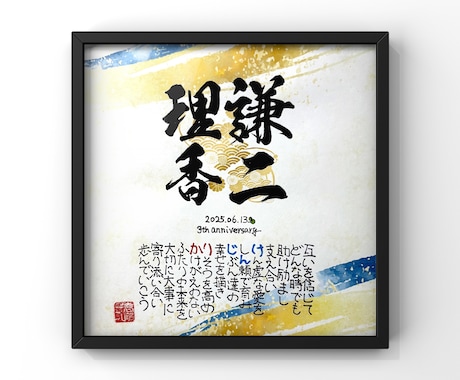 謙二
理香
2025.06.13
9th anniversary
互いを信じて
どんな時でも
助け励まし
支え合い
けん虚な愛を
しん頼で育み
じぶん達の
幸せを描き
りそうを高め
かけがえのない
ふたりの未来を
大切に大事に
寄り添い合い
歩んでいこう